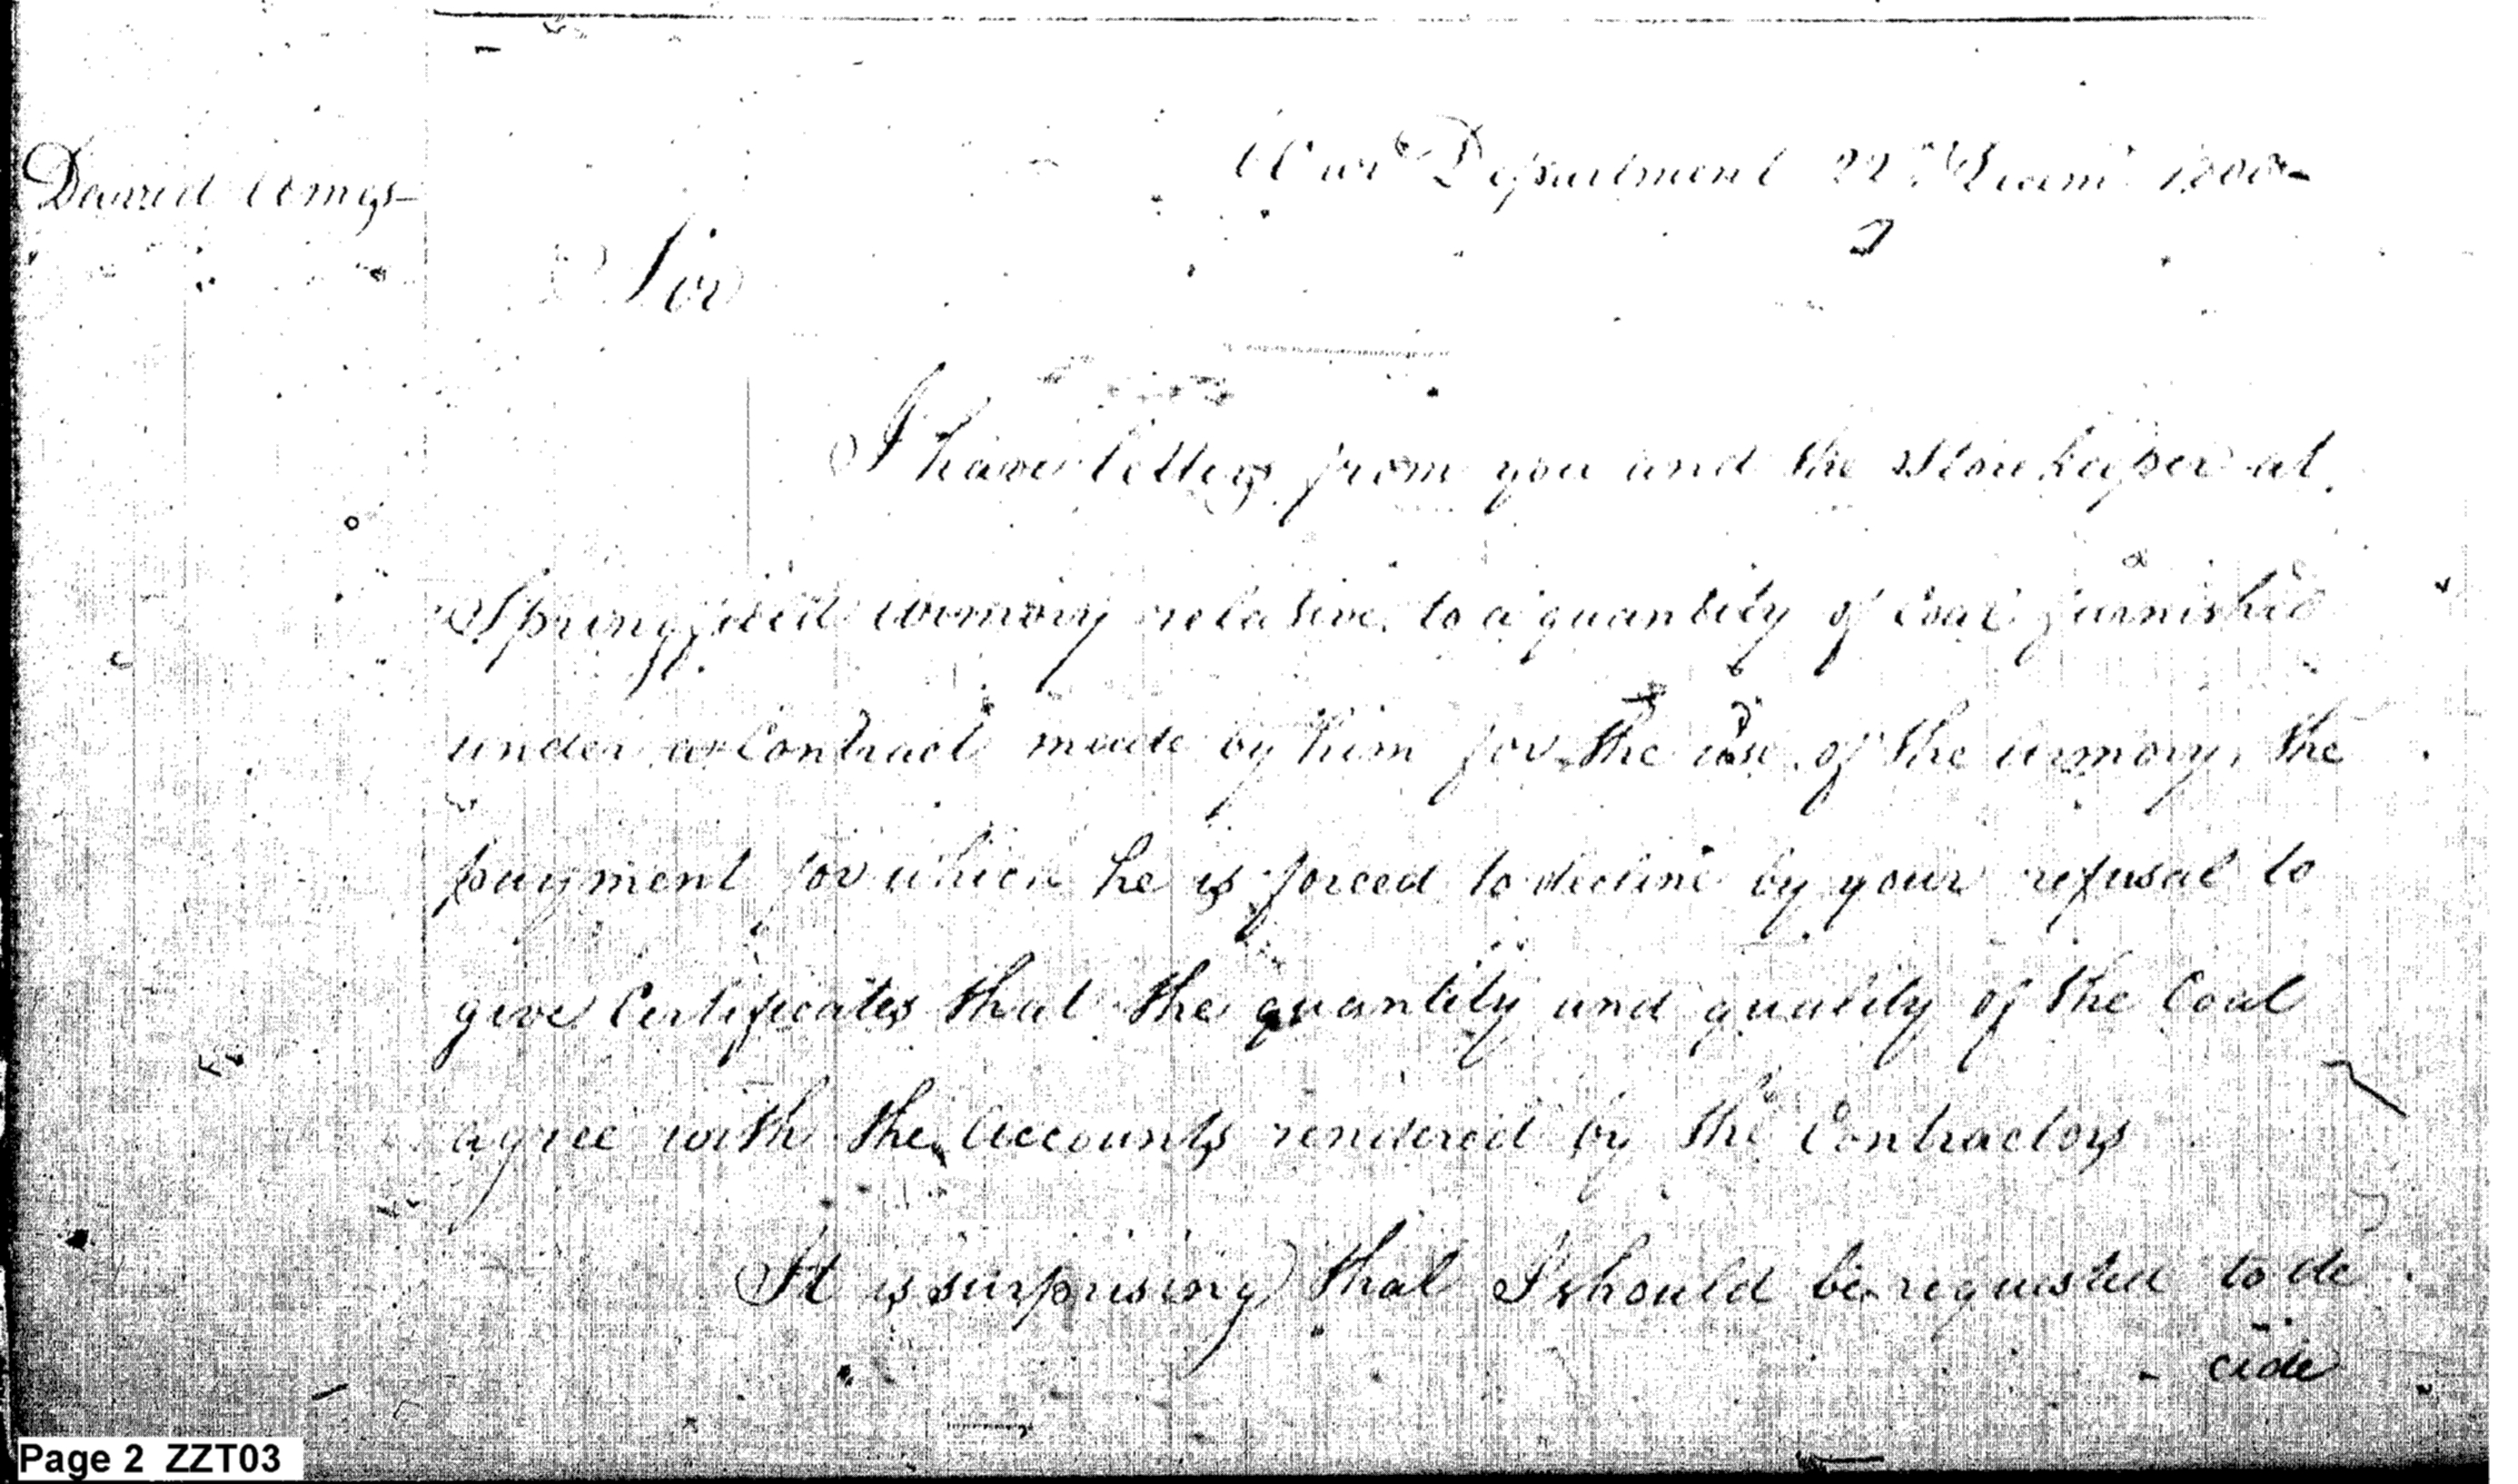 War Department 22d Jany 1800
David Ames
Sir
I have letters from you and the Storekeeper at
Springfield armory relative to a quantity of Coal furnished
under a Contract made by him for the use of the armory, the
payment for which he is forced to decline by your refusal to
give Certificates that the quantity and quality of the Coal
agree with the Accounts rendered by the Contractors
It is surprising that I should be requested to de
cide
Page 2 ZZT03